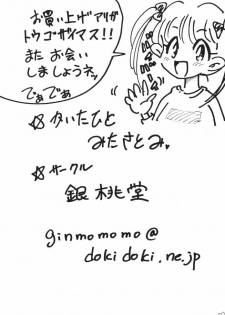 お買い上げアリガ
トウゴザイマス!!
また お会い
しましょうネ。
でぁでぁ
☆かいたひと
みたさとみ。
☆サークル
銀桃堂
ginmomomo@
dokidoki.ne.jp